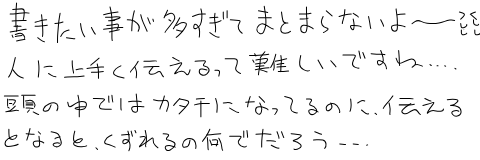 書きたい事が多すぎてまとまらないよ〜
人に上手く伝えるって難しいですね....
頭の中ではカタチになってるのに、伝える
となると、くずれるの何でだろう---